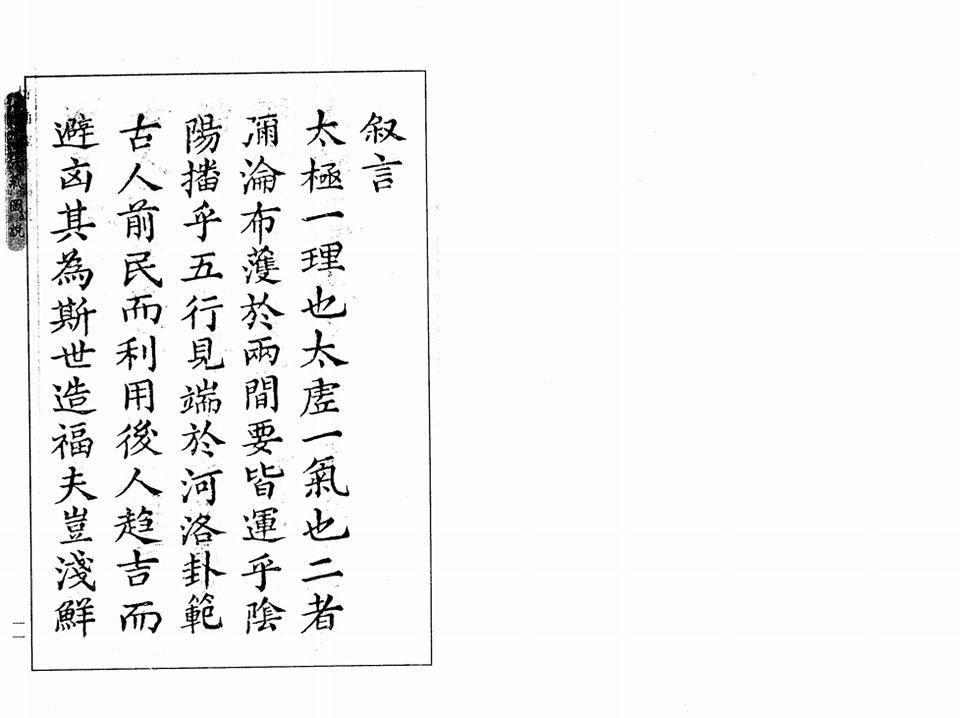 叙言
太極一理也太虗一氣也二者
彌淪布濩於兩間要皆運乎陰
陽播乎五行見端於河洛卦範
古人前民而利用後人趋吉而
避㐫其為斯世造福夫豈淺鮮
圖說
一一